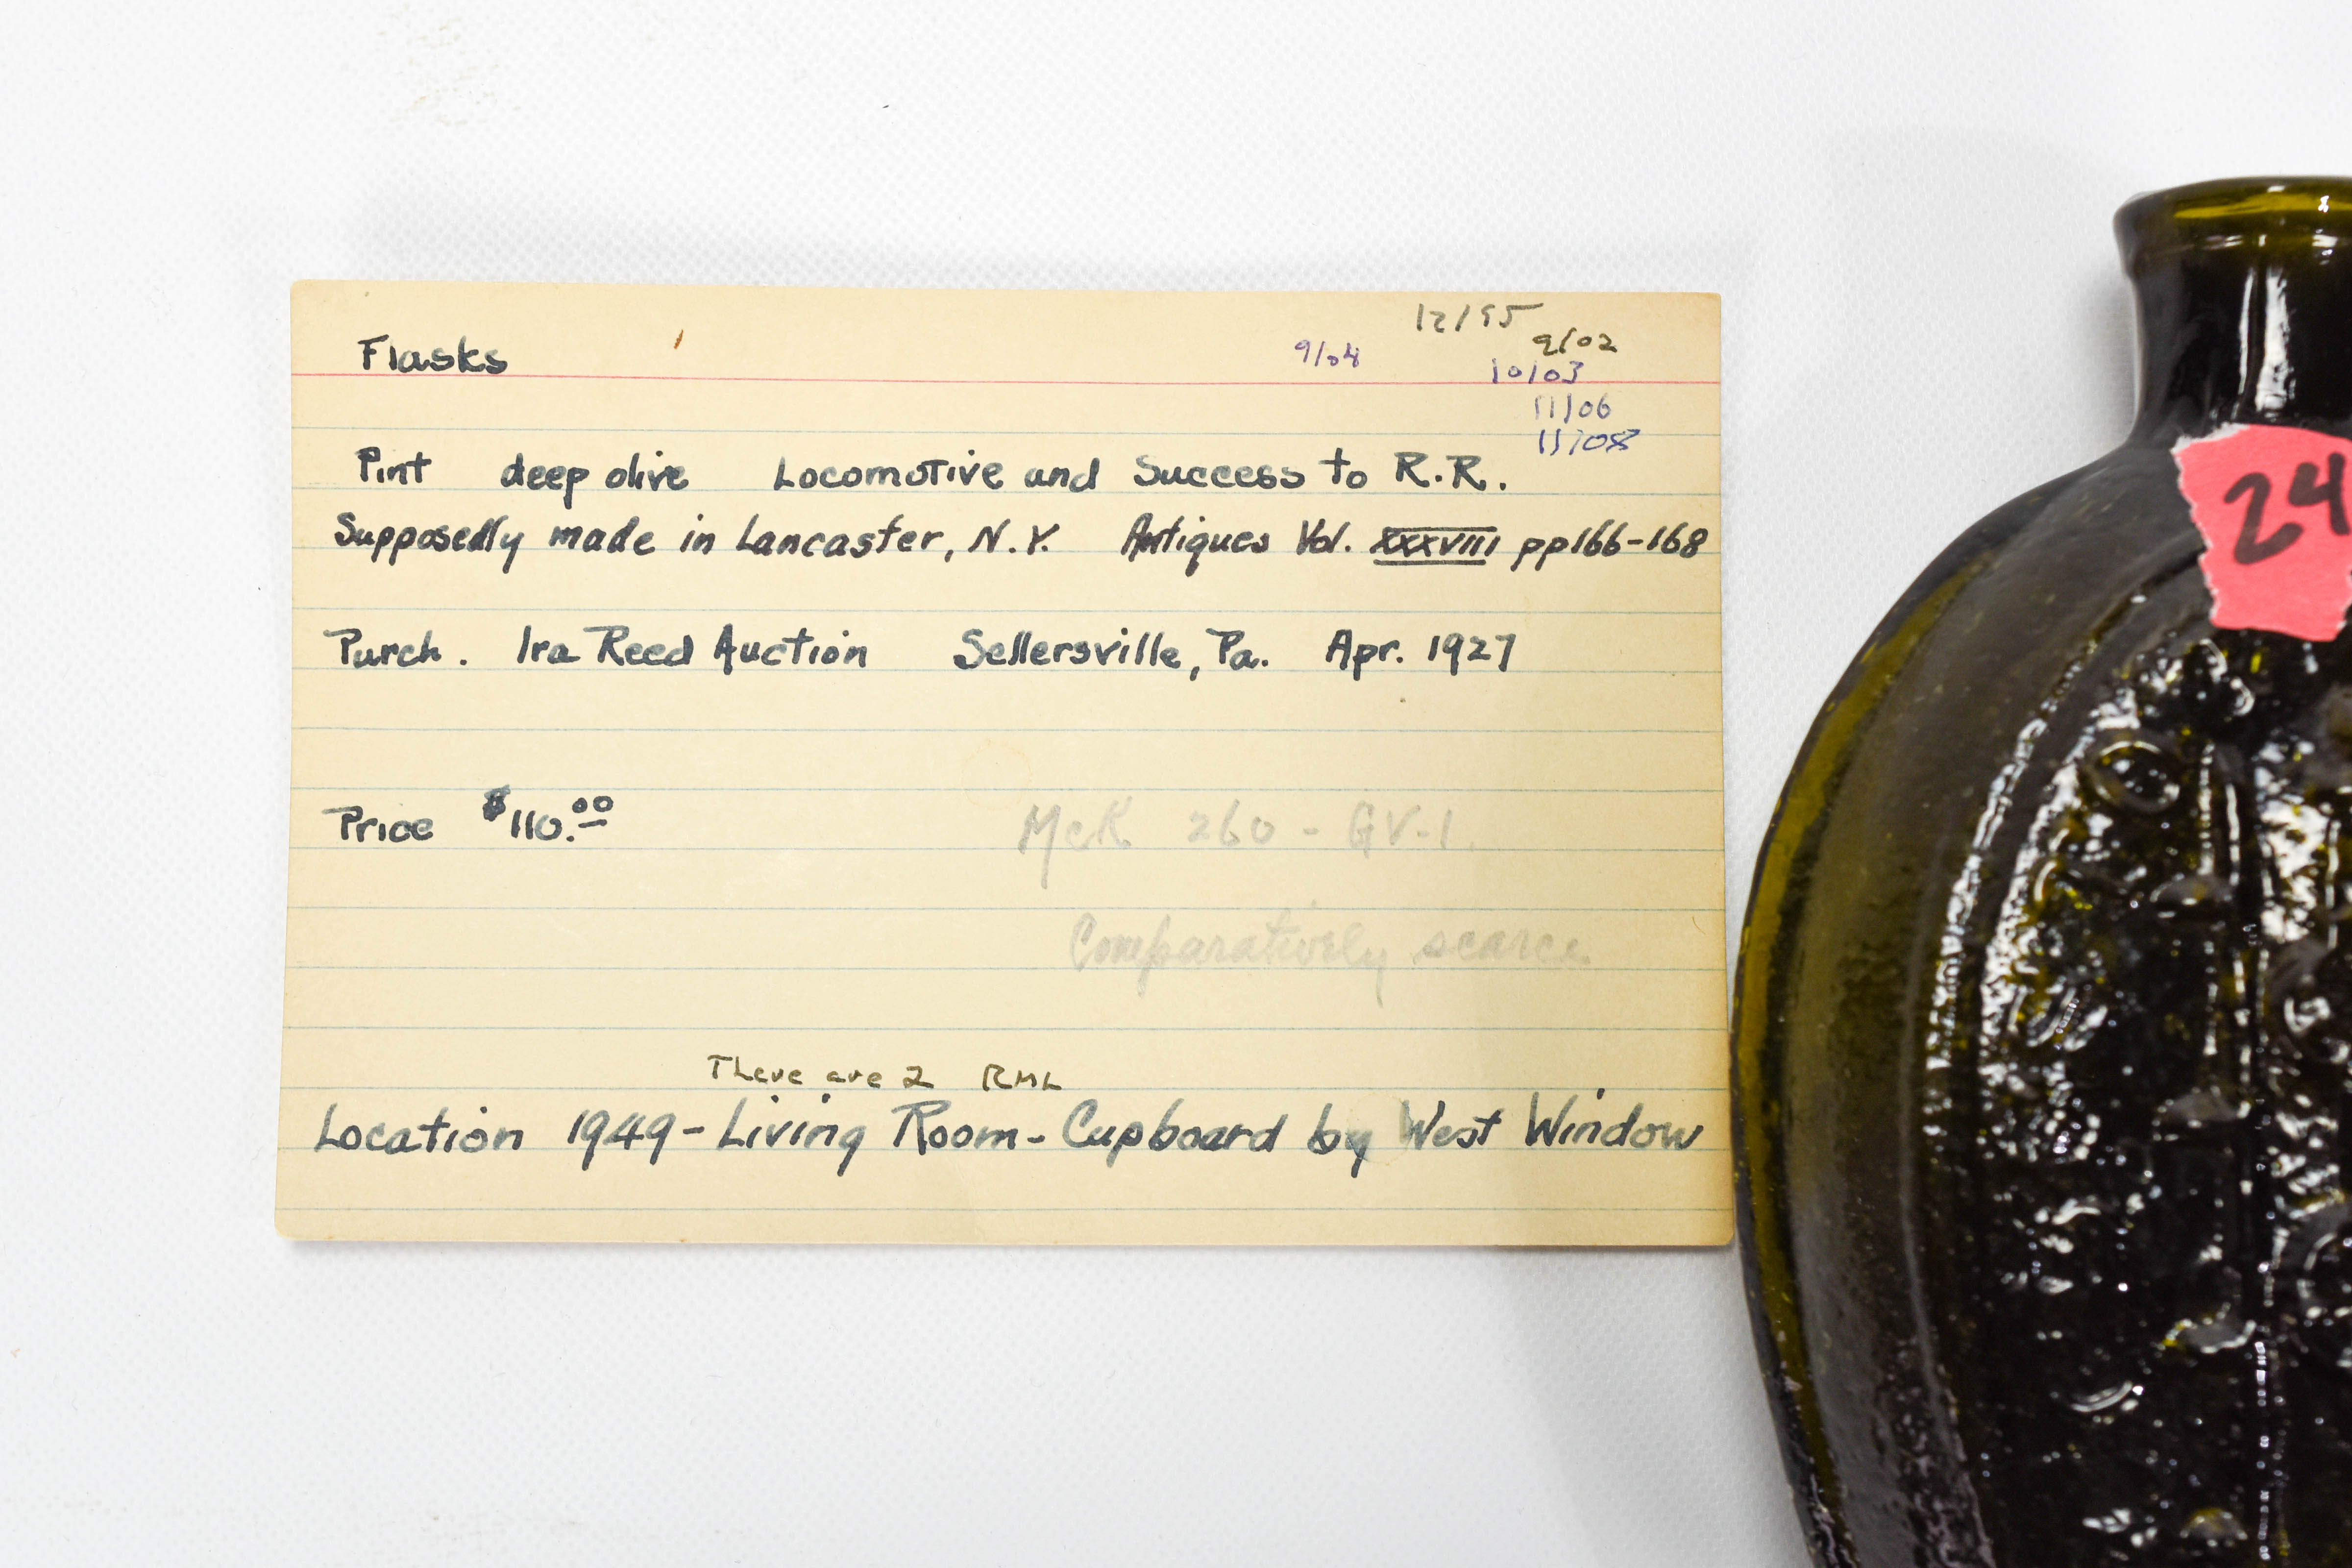 12/95
Flasks 9/04 9/02
10/03
11/06
11/08
Pint deep olive Locomotive and Success to R.R.
Supposedly made in Lancaster, N.Y. Antiques Vol. XXXVIII pp166-168
Purch. Ira Reed Auction Sellersville, Pa. Apr. 1927
Price $110.00
McK 260 - GV-1.
Comparatively scarce.
There are 2 RML
Location 1949-Living Room-Cupboard by West Window
24